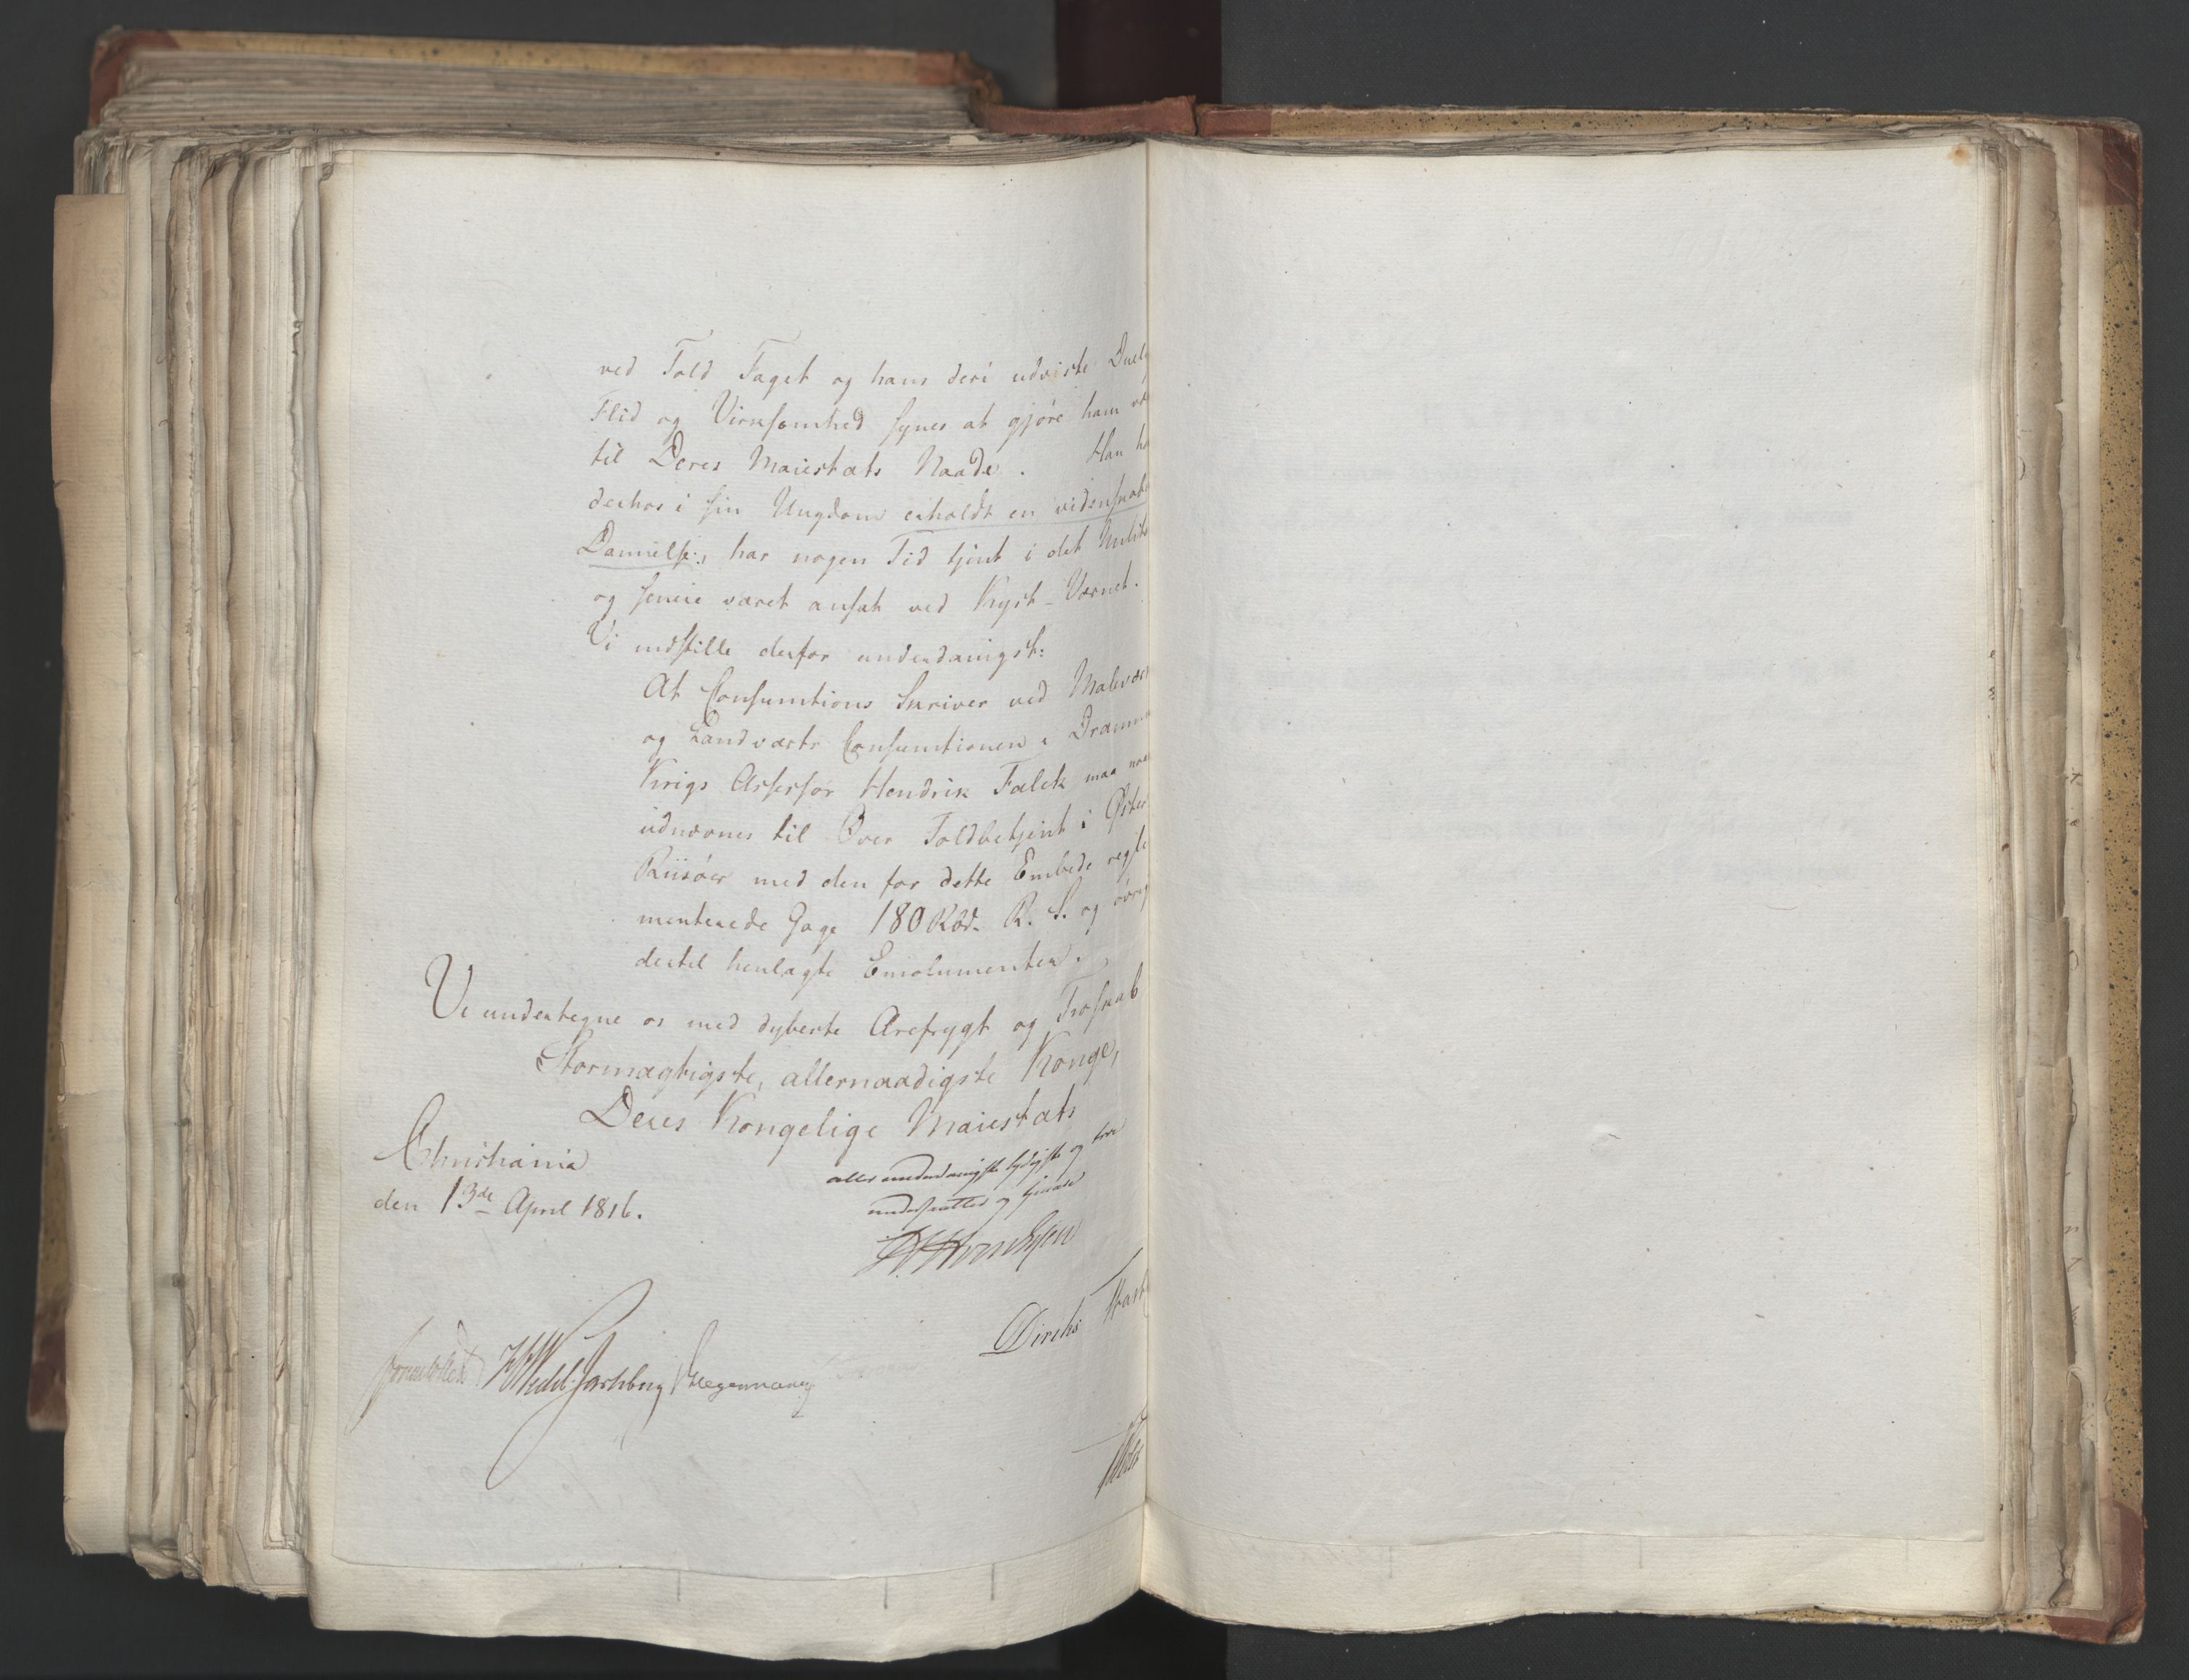 ved Told Faget og hans deri udviste Duel
Flid og Virksomhed synes at gjøre ham
til Deres Maiestæts Naade. Han ha
derhos i sin Ungdom erholdt en videnskabe
Dannelse, har nogen Tid tjent i det
og senere været ansat ved Kyst-Værnet.
Vi indstille derfor underdanigst:
At Consumtions Skriver ved
og Landværts Consumtionen i Dramm
Krigs Assessor Hendrik Falck maa
udnævnes til Over Toldbetjent i Øster
Riisöer med den for dette Embede regle
menterede Gage 180 Rbd. R. S. og övrig
dertil henlagte Emolumenter.
Vi undertegne os med dybeste Ærefrygt og Troskab
Stormægtigste, allernaadigste Konge,
Deres Kongelige Maiestæts
Christiania
den 13de April 1816.
allerunderdanigste lydigste og troe
undersaatter og tjenere
Sommerhielm HWedel Jarlsberg Hegermann